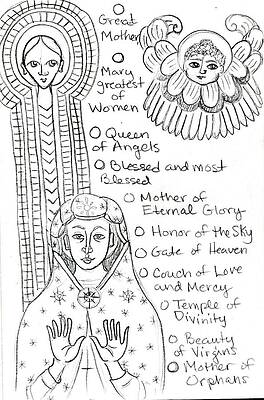 Great
Mother
Mary
greatest
of
Women
Queen
of Angels
Blessed and most
Blessed
Mother of
Eternal Glory
Honor of the Sky
Gate of Heaven
Couch of Love
and Mercy
Temple of
Divinity
Beauty
of Virgins
Mother of
Orphans